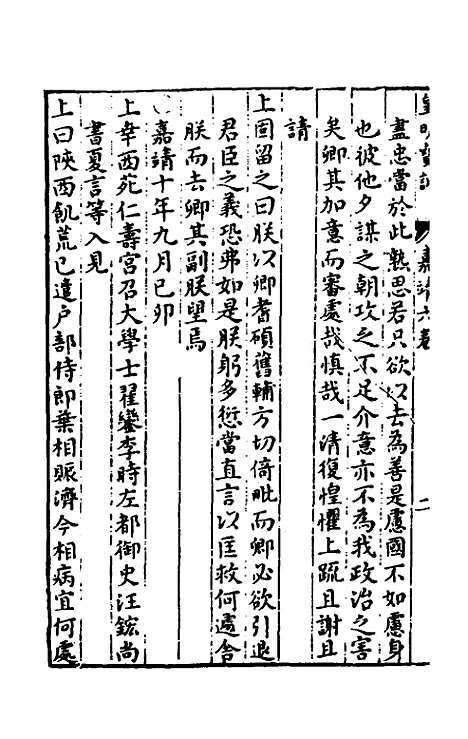 皇明寶訓 嘉靖六卷 二
盡忠當於此熟思若只欲以去為善是慮國不如慮身
也彼他夕謀之朝攻之不足介意亦不為我政治之害
矣卿其加意而審處哉慎哉一清復惶懼上疏且謝且
請
上固留之曰朕以卿耆碩舊輔方切倚毗而卿必欲引退
君臣之義恐弗如是朕躬多愆當直言以匡救何遽舍
朕而去卿其副朕望焉
○嘉靖十年九月己卯
上幸西苑仁壽宮召大學士翟鑾李時左都御史汪鋐尚
書夏言等入見
上曰陝西飢荒已遣戶部侍郎葉相賑濟今相病宜何處